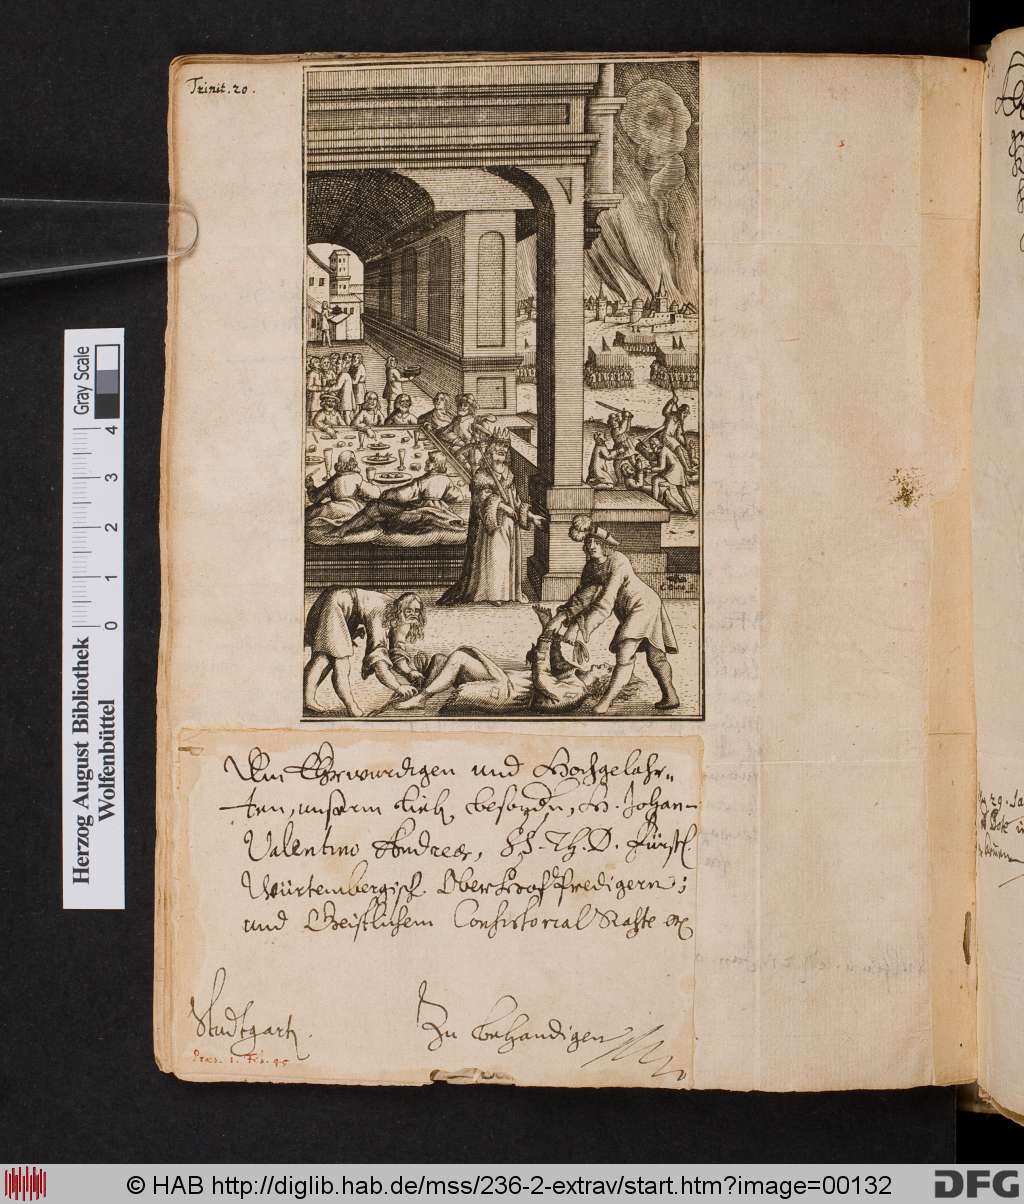 Trinit. 20.
Dem Ehrwürdigen und Hochgelahr=
ten, unserm lieb. besondn, H. Johan-
Valentino Andreæ, S S. Th. D. Fürstl.
Würtembergisch. Ober Hoff Predigern;
und Geistlichem Consistorial Rahte
Studtgart.
Zu behandigen
Præs. 1. Feb. 45
Herzog August Bibliothek
Wolfenbüttel
Gray Scale
0 1 2 3 4
29. Ja
© HAB http://diglib.hab.de/mss/236-2-extrav/start.htm?image=00132
DFG